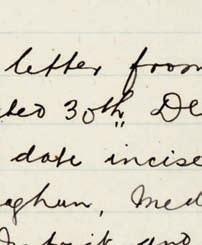 letter from
ted 30th De
date incise
aghan, Med